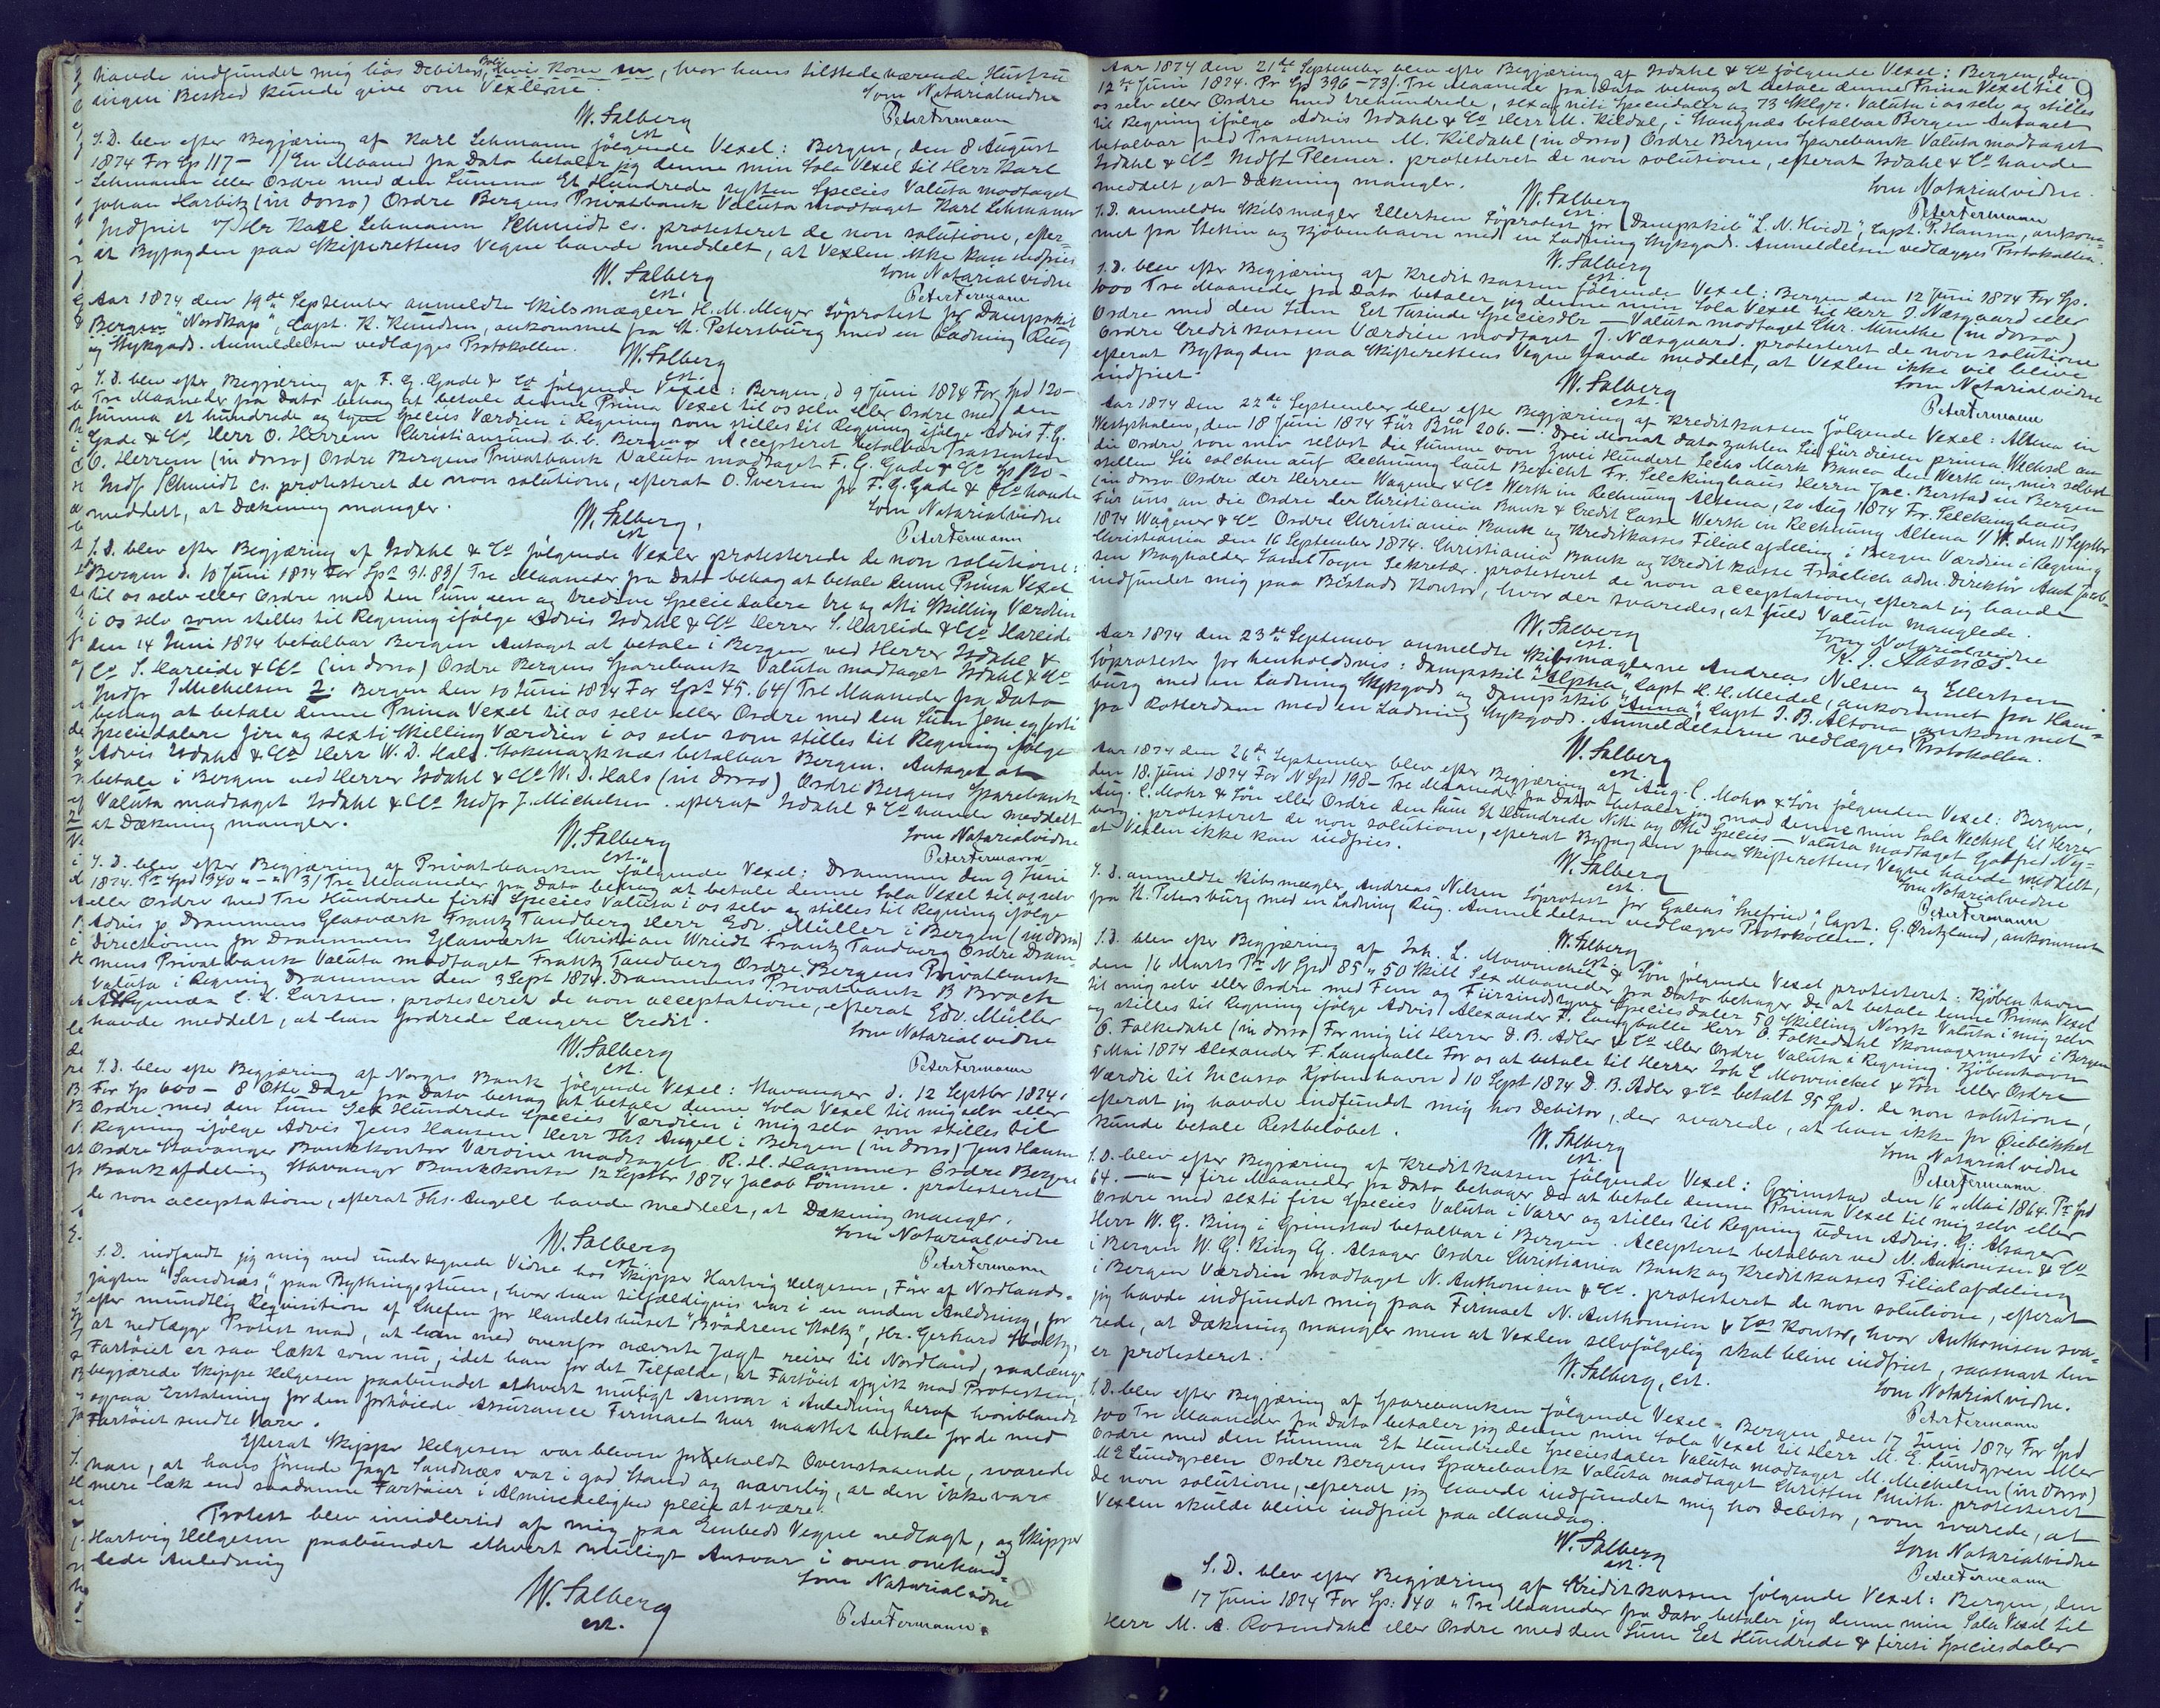 havde indfundet mig hos Debitors Bolig, hvis Kone, hvor hans tilstedeværende Hustru
ingen Besked kunde give om Vexlerne.
W. Salberg
est
Som Notarialvidne
Peter Fermann
S.D. blev efter Begjæring af Karl Lehmann følgende Vexel: Bergen, den 8 August
1874 For Sp 117 – 1/ En Maaned fra Dato betaler jeg denne min Sola Vexel til Herr Karl
Lehmann eller Ordre med den Summa Et Hundrede sytten Species Valuta modtaget
Johan Harbitz (in dorso) Ordre Bergens Privatbank Valuta modtaget Karl Lehmann
Indfriet v/ Hr Karl Lehmann Schmidt cs. protesteret de non solutione, efter-
at Byfogden paa Skifterettens Vegne havde meddelt, at Vexlen ikke kan indfries
W. Salberg
est.
Som Notarialvidne
Peter Fermann
Aar 1874 den 19de September anmeldte Skibsmægler H. M. Meyer Söprotest for Dampskib
"Nordkap", Capt. K. Knudsen, ankommet fra St. Petersburg med en Ladning Rug
og Stykgods. Anmeldelsen vedlægges Protokollen.
W. Salberg
est.
S.D. blev efter Begjæring af F. G. Gade & Co følgende Vexel: Bergen, d 9 Juni 1874 For Spd 120 –
Tre Maaneder fra Dato behag at betale denne Prima Vexel til os selv eller Ordre med den
Summa et hundrede og tyve Species Værdien i Regning som stilles til Regning ifølge Advis F. G.
Gade & Co, Herr O. Herrem Christiansund b. b. Bergen Accepteret betalbar Trassenten
O. Herrem (in dorso) Ordre Bergens Privatbank Valuta modtaget F. G. Gade & Co Sp 120 –
Indf Schmidt cs. protesteret de non solutione, efterat O. Iversen for F. G. Gade & Co havde
meddelt, at Dækning mangler.
W. Salberg,
est
Som Notarialvidne
Peter Fermann
S.D. blev efter Begjæring af Isdahl & Co følgende Vexler protesterede de non solutione:
Bergen d. 10 Juni 1874 For Spd 31.83/ Tre Maaneder fra Dato behag at betale denne Prima Vexel
til os selv eller Ordre med den Sum een og tredive Speciedalere tre og otti Skilling Værdien
i os selv som stilles til Regning ifølge Advis Isdahl & Co Herrer S. Hareide & Co Hareide
den 14 Juni 1874 betalbar Bergen Antaget at betale i Bergen ved Herrer Isdahl &
Co S. Hareide & Co (in dorso) Ordre Bergens Sparebank Valuta modtaget Isdahl & Co
Indfr J Michelsen 2: Bergen den 10 Juni 1874 For Spd 45.64/ Tre Maaneder fra Dato
behag at betale denne Prima Vexel til os selv eller Ordre med den Sum fem og forti
Speciedalere fire og sexti Skilling Værdien i os selv som stilles til Regning ifølge
Advis Isdahl & Co Herr W. D. Hals. Stokmarknæs betalbar Bergen. Antaget at
betale i Bergen ved Herrer Isdahl & Co W. D. Hals (in dorso) Ordre Bergens Sparebank
Valuta modtaget Isdahl & Co Indfr J. Michelsen. efterat Isdahl & Co havde meddelt
at Dækning mangler.
W. Salberg
est.
Som Notarialvidne
Peter Fermann
S.D. blev efter Begjæring af Privatbanken følgende Vexel: Drammen den 9 Juni
1874. Pr Spd 340 " – " 3/ Tre Maaneder fra Dato behag at betale denne Sola Vexel til os selv
eller Ordre med Tre Hundrede firti Species Valuta i os selv og stilles til Regning ifølge
Advis p. Drammens Glasværk Frantz Tandberg Herr Edv. Müller i Bergen (in dorso)
Directionen for Drammens Glasværk Christian Wriedt Frantz Tandberg Ordre Dram-
mens Privatbank Valuta modtaget Frantz Tandberg Ordre Bergens Privatbank
Valuta i Regning Drammen den 3 Sept 1874. Drammens Privatbank B Broch
C. L. Larsen. protesteret de non acceptatione, efterat Edv. Müller
havde meddelt, at han fordrede længere Credit.
W. Salberg
est.
Som Notarialvidne
Peter Fermann
S.D. blev efter Begjæring af Norges Bank følgende Vexel: Stavanger d. 12 Septbr 1874.
For Sp 600 – 8 Otte Dage fra Dato behag at betale denne Sola Vexel til mig selv eller
Ordre med den Sum Sex Hundrede Species Værdien i mig selv som stilles til
Regning ifølge Advis Jens Hansen. Herr Ths Angell i Bergen (in dorso) Jens Hansen
Ordre Stavanger Bankkontor Værdien modtaget R. H. Hammer Ordre Bergens
Bankafdeling Stavanger Bankkontor 12 Septbr 1874 Jacob Somme. protesteret
de non acceptatione, efterat Ths. Angell havde meddelt, at Dækning mangler.
W. Salberg
est.
Som Notarialvidne
Peter Fermann
S.D. indfandt jeg mig med undertegnede Vidne hos Skipper Hartvig Helgesen, Fører af Nordlands-
jagten "Sandnæs", paa Bythingstuen, hvor han tilfældigvis var i en anden Anledning, for
efter mundtlig Reqvisition af Chefen for Handelshuset "Brødrene Stoltz", Hr. Gerhard Stoltz,
at nedlægge Protest mod, at han med ovenfor nævnte Jagt reiser til Nordland, saalænge
Fartöiet er saa lækt som nu, idet han for det Tilfælde, at Fartöiet afgik mod Protesten,
begjærede Skipper Helgesen paabundet ethvert muligt Ansvar i Anledning heraf hvoriblandt
ogsaa Erstatning for den forhöiede Assurance Firmaet har maattet betale for de med
Fartöiet sendte Varer.
Efterat Skipper Helgesen var bleven foreholdt Ovenstaaende, svarede
han, at hans förende Jagt Sandnæs var i god Stand og navnlig, at den ikke var
mere læk end saadanne Fartöier i Almindelighed pleie at være.
Protest blev imidlertid af mig paa Embeds Vegne nedlagt, og Skipper
Hartvig Helgesen paabundet ethvert muligt Ansvar i oven omhand-
lede Anledning
W. Salberg
est.
Som Notarialvidne
Peter Fermann.
9
Aar 1874 den 21de September blev efter Begjæring af Isdahl & Co følgende Vexel: Bergen, den
12te Juni 1874. Pr Sp 396 – 73/. Tre Maaneder fra Dato behag at betale denne Prima Vexel til
os selv eller Ordre med trehundrede, sex og niti Speciedaler og 73 Sklgr. Valuta i os selv og stilles
til Regning ifølge Advis Isdahl & Co Herr M. Kildal, i Stangnæs betalbar Bergen Antaget
betalbar ved Trasenterne M. Kildahl (in dorso) Ordre Bergens Sparebank Valuta modtaget
Isdahl & Co Indft Plesner. protesteret de non solutione, efterat Isdahl & Co havde
meddelt, at Dækning mangler.
W. Salberg
est.
Som Notarialvidne.
Peter Fermann
S.D. anmeldte Skibsmægler Ellertsen Söprotest for Dampskib "L. N. Hvidt", Capt. P. Hansen, ankom-
met fra Stettin og Kjöbenhavn med en Ladning Stykgods. Anmeldelsen vedlægges Protokollen.
W. Salberg
est.
S.D. blev efter Begjæring af Kreditkassen følgende Vexel: Bergen den 12 Juni 1874 For Sp.
1000 Tre Maaneder fra Dato betaler jeg denne min Sola Vexel til Herr J. Næsgaard eller
Ordre med den Sum Eet Tusinde Speciesdlr – Valuta modtaget Chr. Minutke (in dorso)
Ordre Creditkassen Værdien modtaget J. Næsgaard. protesteret de non solutione
efterat Byfogden paa Skifterettens Vegne havde meddelt, at Vexlen ikke vil blive
indfriet.
W. Salberg
est.
Som Notarialvidne
Peter Fermann
Aar 1874 den 22de September blev efter Begjæring af Kreditkassen følgende Vexel: Altena in
Westphalen, den 18 Juni 1874 Für Bmco 206. – Drei Monat dato zahlen Sie für diesen prima Wechsel an
die Ordre von mir selbst die Summe von Zwei Hundert Sechs Mark Banco den Werth in mir selbst
stellen Sie solchen auf Rechnung laut Bericht Fr. Selckinghaus Herrn Jac. Berstad in Bergen
(in dorso Ordre der Herren Wagener & Co Werth in Rechnung Altena, 20 Aug 1874 Fr. Selckinghaus
Für uns an die Ordre der Christiania Bank & Credit Casse Werth in Rechnung Altena i/W. den 11 Septbr
1874 Wagener & Co Ordre Christiania Bank og Kreditkasses Filialafdeling i Bergen Værdien i Regning
Christiania den 16 September 1874. Christiania Bank og Kreditkasse Frölich adm. Direktör Aart Jacob-
sen Bogholder Samt Toyen Sekretær. protesteret de non acceptatione, efterat jeg havde
indfundet mig paa Bestads Kontor, hvor der svaredes, at fuld Valuta manglede.
W. Salberg
est.
Som Notarialvidne
K. J. Aasnæs.
Aar 1874 den 23de September anmeldte Skibsmæglerne Andreas Nilsen og Ellertsen
Söprotester for henholdsvis: Dampskib "Alpha", Capt H. H. Meidel, ankommet fra Ham-
burg med en Ladning Stykgods og Dampskib "Anna", Capt J. B. Altona, ankommet
fra Rotterdam med en Ladning Stykgods. Anmeldelserne vedlægges Protokollen.
W. Salberg
est.
Aar 1874 den 26de September blev efter Begjæring af Aug. C. Mohr & Sön følgenden Vexel: Bergen,
den 18. Juni 1874 For N Spd 198 – Tre Maaneder fra Dato betaler jeg mod denne min Sola Wechsel til Herrer
Aug. C. Mohr & Sön eller Ordre den Sum Et Hundrede Nitti og Otte Species – Valuta modtaget Gotfred Ny-
borg. protesteret de non solutione, efterat Byfogden paa Skifterettens Vegne havde meddelt,
at Vexlen ikke kan indfries.
W. Salberg
est.
Som Notarialvidne
Peter Fermann
S.D. anmeldte Skibsmægler Andreas Nilsen Söprotest for Galeas "Snefried", Capt. G. Öritzland, ankommet
fra St. Petersburg med en Ladning Rug. Anmeldelsen vedlægges Protokollen.
W. Salberg
est.
S.D. blev efter Begjæring af Joh. L. Mowinckel & Sön følgende Vexel protesteret: Kjöbenhavn
den 16 Marts Pr N Spd 85 " 50 Skill Sex Maaneder fra Dato behager De at betale denne Prima Vexel
til mig selv eller Ordre med Fem og Fiirsindstyve Speciesdaler 50 Skilling Norsk Valuta i mig selv
og stilles til Regning ifølge Advis Alexander F. Langballe Herr O. Falkedahl Skomagermester i Bergen
O. Falkedahl (in dorso) For mig til Herrer D. B. Adler & Co eller Ordre Valuta i Regning. Kjöbenhavn
5 Mai 1874 Alexander F. Langballe For os at betale til Herrer Joh L Mowinckel & Sön eller Ordre
Værdie til Incasso Kjöbenhavn d 10 Sept 1874 D. B. Adler & Co betalt 35 Spd. de non solutione,
efterat jeg havde indfundet mig hos Debitor, der svarede, at han ikke for Öieblikket
kunde betale Restbelöbet.
W. Salberg
est.
Som Notarialvidne
Peter Fermann.
S.D. blev efter Begjæring af Kreditkassen følgende Vexel: Grimstad den 16 Mai 1864. Pr Spd
64. – " – 4 fire Maaneder fra Dato behager De at betale denne Prima Vexel til mig selv eller
Ordre med sexti fire Species Valuta i Varer og stilles til Regning uden Advis. G: Alsager
Herr W. G. Bing i Grimstad betalbar i Bergen. Accepteret betalbar ved N. Anthonisen & Co
i Bergen W. G. Bing G. Alsager Ordre Christiania Bank og Kreditkasses Filialafdeling
i Bergen Værdien modtaget N. Anthonisen & Co. protesteret de non solutione, efterat
jeg havde indfundet mig paa Firmaet N. Anthonisen & Cos Kontor, hvor Anthonisen sva-
rede, at Dækning mangler men at Vexlen selvfølgelig skal blive indfriet, saasnart den
er protesteret.
W. Salberg, est.
Som Notarialvidne.
Peter Fermann
S.D. blev efter Begjæring af Sparebanken følgende Vexel: Bergen, den 17 Juni 1874 For Spd
100 Tre Maaneder fra Dato betaler jeg denne min Sola Vexel til Herr M. E. Lundgren eller
Ordre med den Summa Et Hundrede Speciesdaler Valuta modtaget M. Michelsen (in dorso)
M E Lundgreen Ordre Bergens Sparebank Valuta modtaget Christen Smith. protesteret
de non solutione, efterat jeg havde indfundet mig hos Debitor, som svarede, at
Vexlen skulde blive indfriet paa Mandag.
W. Salberg
est.
Som Notarialvidne
Peter Fermann
S.D. blev efter Begjæring af Kreditkassen følgende Vexel: Bergen, den
17 Juni 1874 For Sp: 140 " Tre Maaneder fra Dato betaler jeg denne min Sola Vexel til
Herr M. A. Rosendahl eller Ordre med den Sum Eet Hundrede & firti Speciesdaler